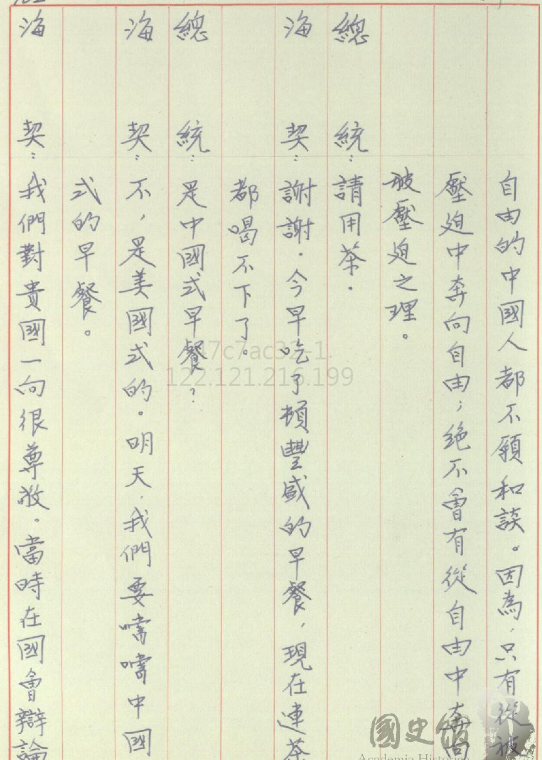 自由的中國人都不願和談。因為，只有從被
壓迫中奔向自由；絕不會有從自由中奔向
被壓迫之理。
總統：請用茶。
海契：謝謝。今早吃了頓豐盛的早餐，現在連茶
都喝不下了。
總統：是中國式早餐？
海契：不，是美國式的。明天，我們要嚐嚐中國
式的早餐。
海契：我們對貴國一向很尊敬。當時在國會辯論
122.121.216.199
國史館
Academia Historica